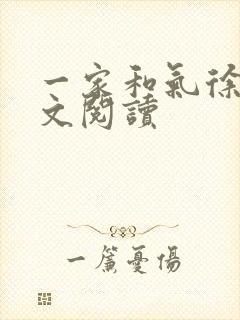 一家和氣徐
文閱讀
一簾憂傷